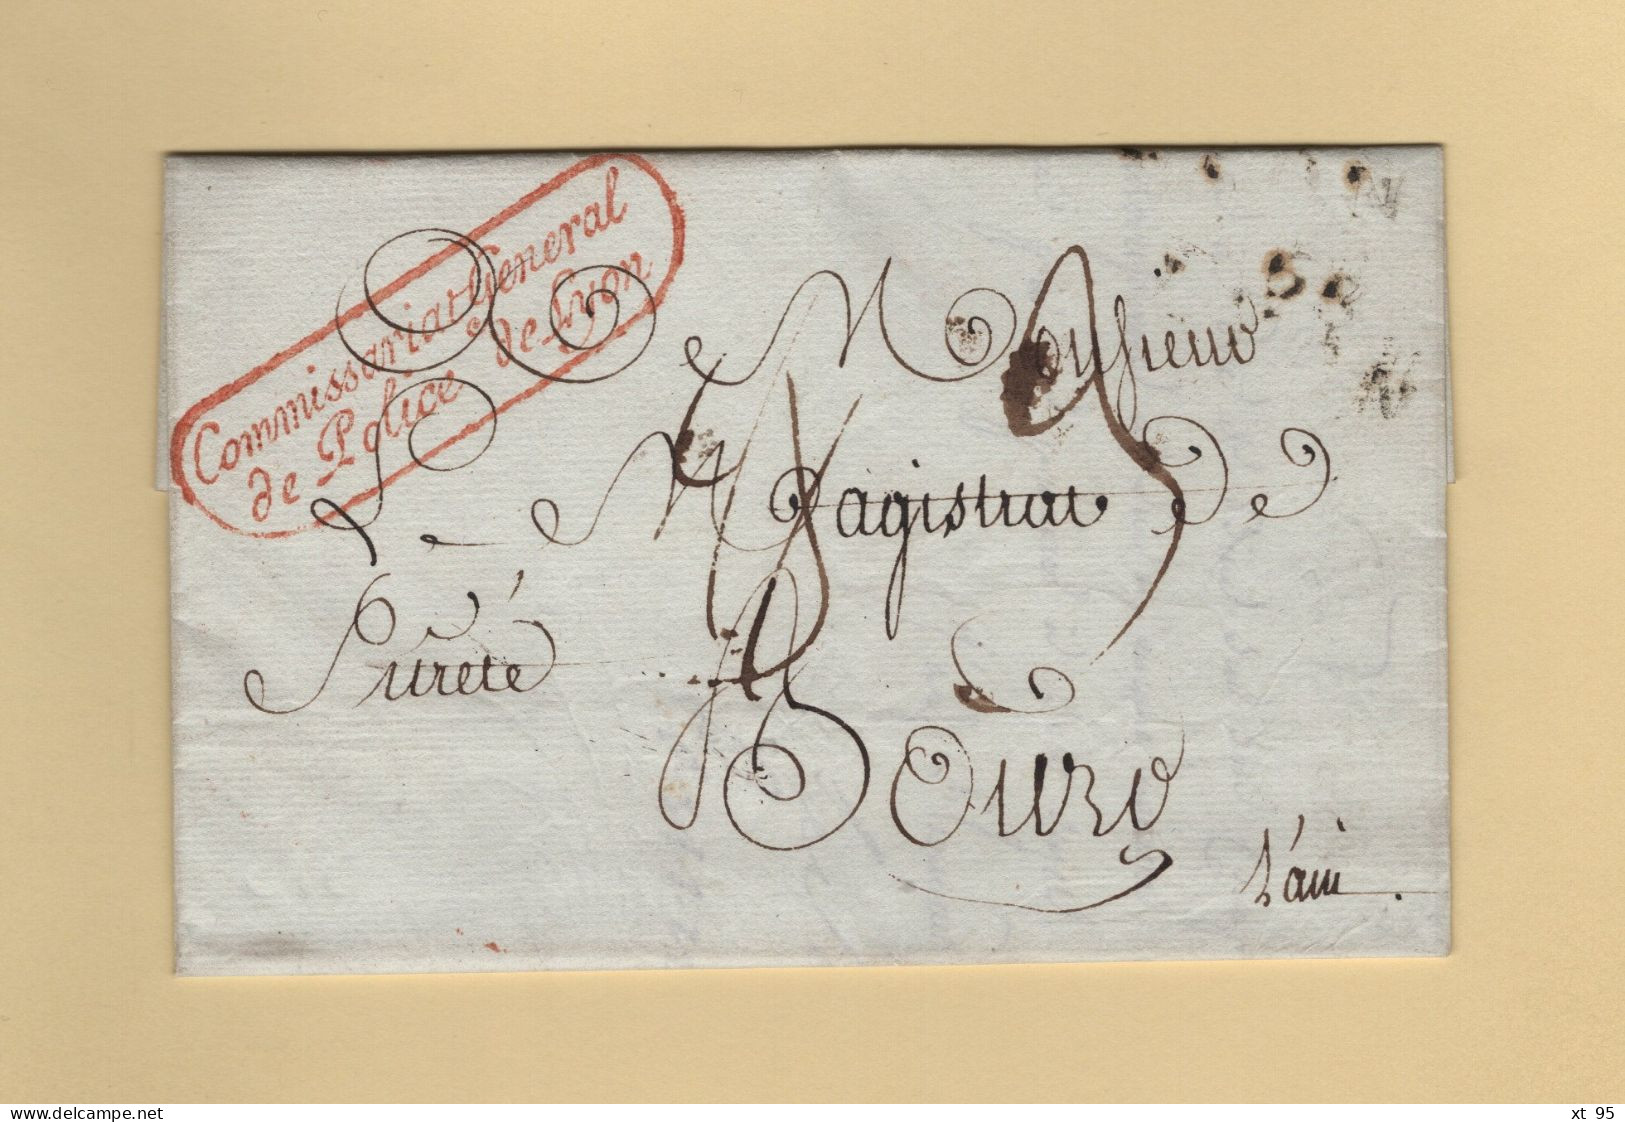 Commissariat General
de Police de Lyon
Monsieur
Le Magistrat de
Sureté
Bourg
L'ain.
© www.delcampe.net
xt 95